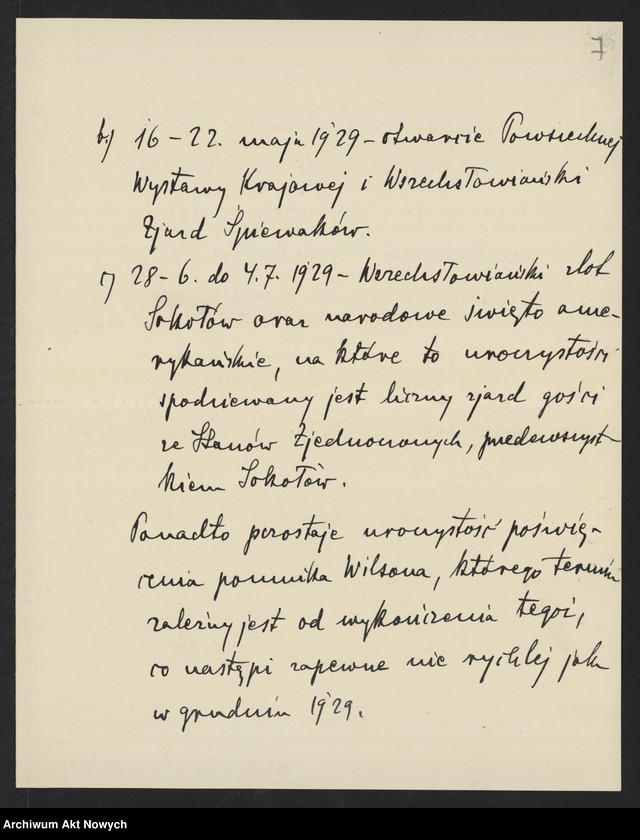 7
b.) 16 – 22. maja 1929 – otwarcie Powszechnej
Wystawy Krajowej i Wszechsłowiański
Zjazd Śpiewaków.
c) 28 – 6. do 4.7. 1929 – Wszechsłowiański zlot
Sokołów oraz narodowe święto ame-
rykańskie, na które to uroczystości
spodziewany jest liczny zjazd gości
ze Stanów Zjednoczonych, przedewszyst-
kiem Sokołów.
Ponadto pozostaje uroczystość poświę-
cenia pomnika Wilsona, którego termin
zależny jest od wykończenia tegoż,
co nastąpi zapewne nie rychlej jak
w grudniu 1929.
Archiwum Akt Nowych